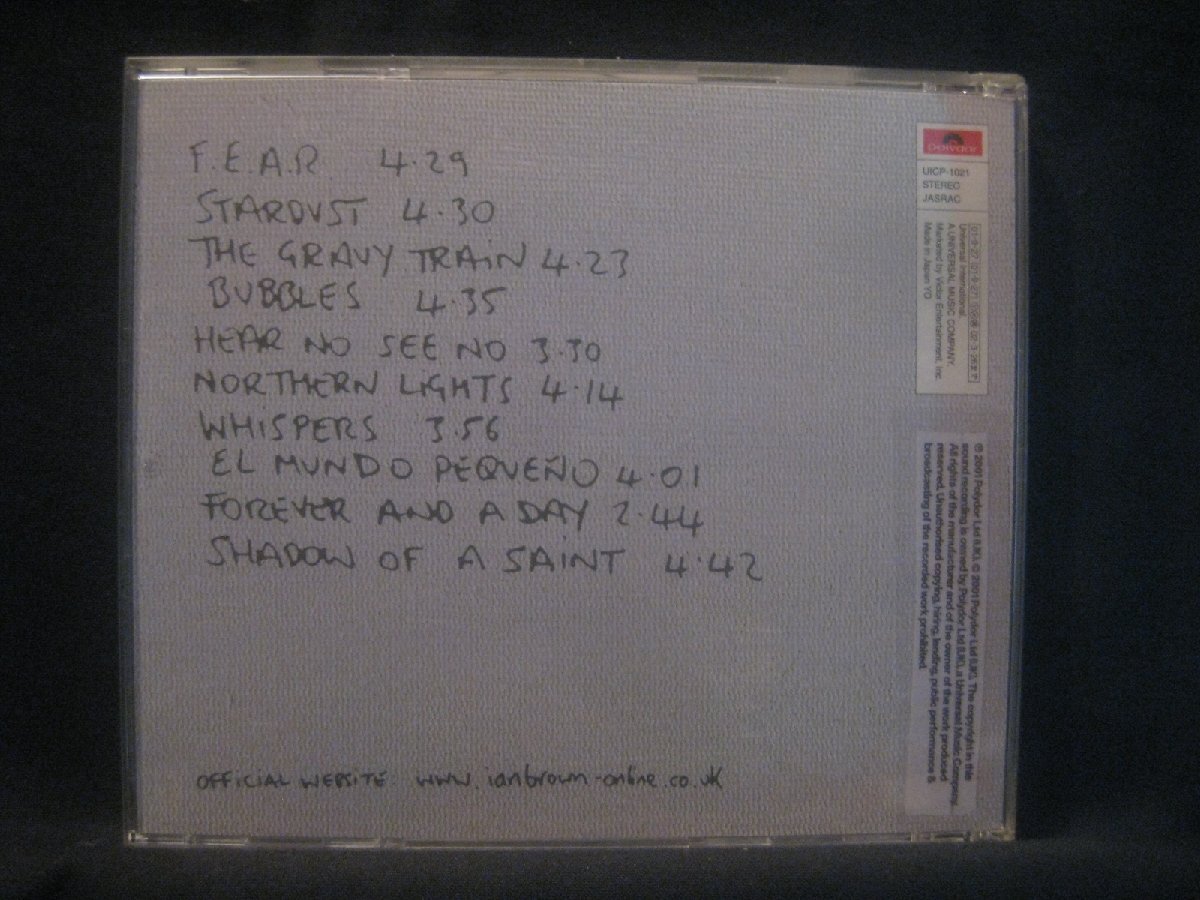 F.E.A.R. 4.29
STARDUST 4.30
THE GRAVY TRAIN 4.23
BUBBLES 4.35
HEAR NO SEE NO 3.30
NORTHERN LIGHTS 4.14
WHISPERS 3.56
EL MUNDO PEQUEÑO 4.01
FOREVER AND A DAY 2.44
SHADOW OF A SAINT 4.42
OFFICIAL WEBSITE: www.ianbrown-online.co.uk
polydor
UICP-1021
STEREO
JASRAC
Universal International
A UNIVERSAL MUSIC COMPANY
Marketed by Victor Entertainment, Inc.
Made in Japan YD
℗ 2001 Polydor Ltd (UK). © 2001 Polydor Ltd (UK). The copyright in this
sound recording is owned by Polydor Ltd (UK), a Universal Music Company.
All rights of the manufacturer and of the owner of the work produced
reserved. Unauthorised copying, hiring, lending, public performance &
broadcasting of the recorded work prohibited.